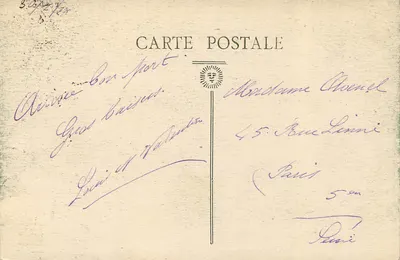 CARTE POSTALE
Arrivée Bon port
Gros baisers
Louis et Valentine
Madame
45 Rue Linné
Paris
5em
Seine